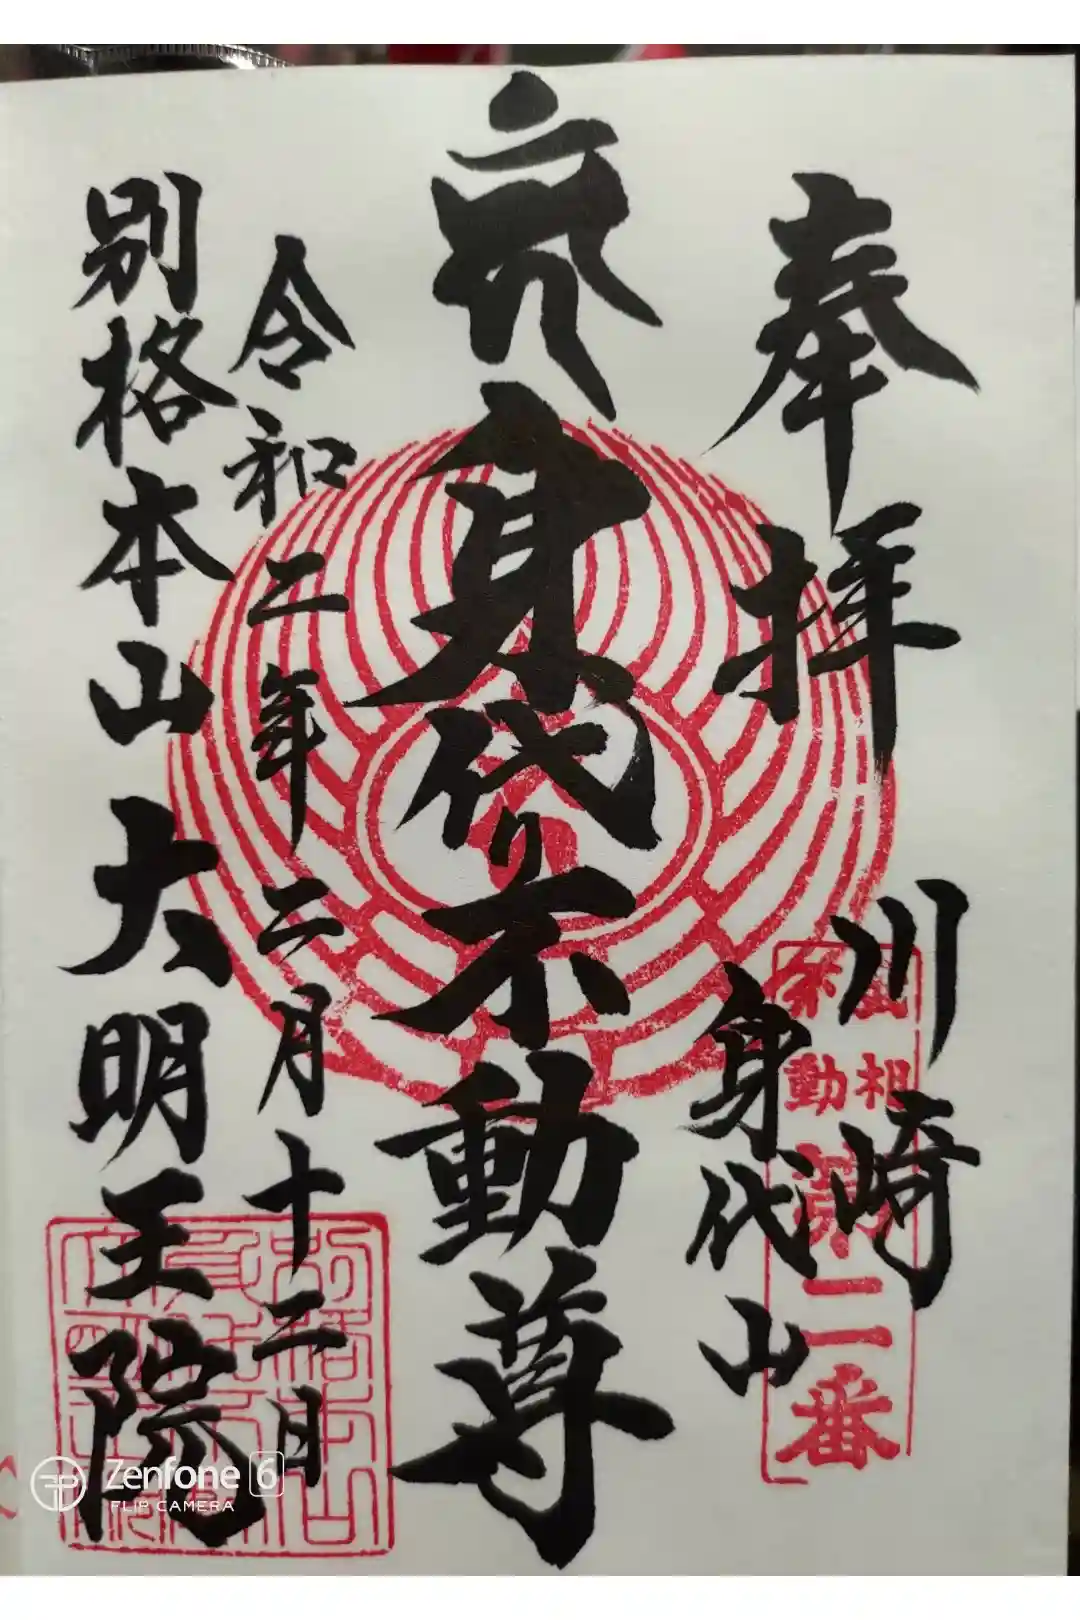 奉拝
川崎
身代山
身代り不動尊
令和二年二月十二日
別格本山大明王院
武相
不動
第二番
Zenfone 6
FLIP CAMERA